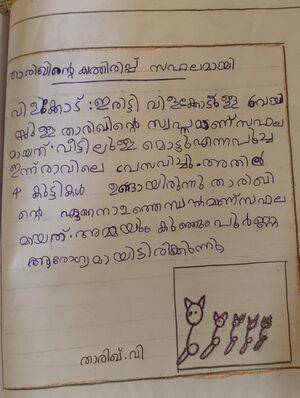 താരിഖിന്റെ കാത്തിരിപ്പ് സഫലമായി
വിളക്കോട് : ഇരിട്ടി വിളക്കോട്ടുള്ള വേയ
സ്സുള്ള താരിഖിന്റെ സ്വപ്നമാണ് സഫല
മായത്. വീട്ടിലുള്ള മൊട്ടു എന്ന പൂച്ച
ഇന്ന് രാവിലെ പ്രസവിച്ചു. അതിൽ
4 കുട്ടികൾ ഉണ്ടായിരുന്നു താരിഖി
ന്റെ ഏറെനാളത്തെ സ്വപ്നമാണ് സഫല
മായത്. അമ്മയും കുഞ്ഞും പൂർണ്ണ
ആരോഗ്യമായിട്ടിരിക്കുന്നു
താരിഖ്. വി